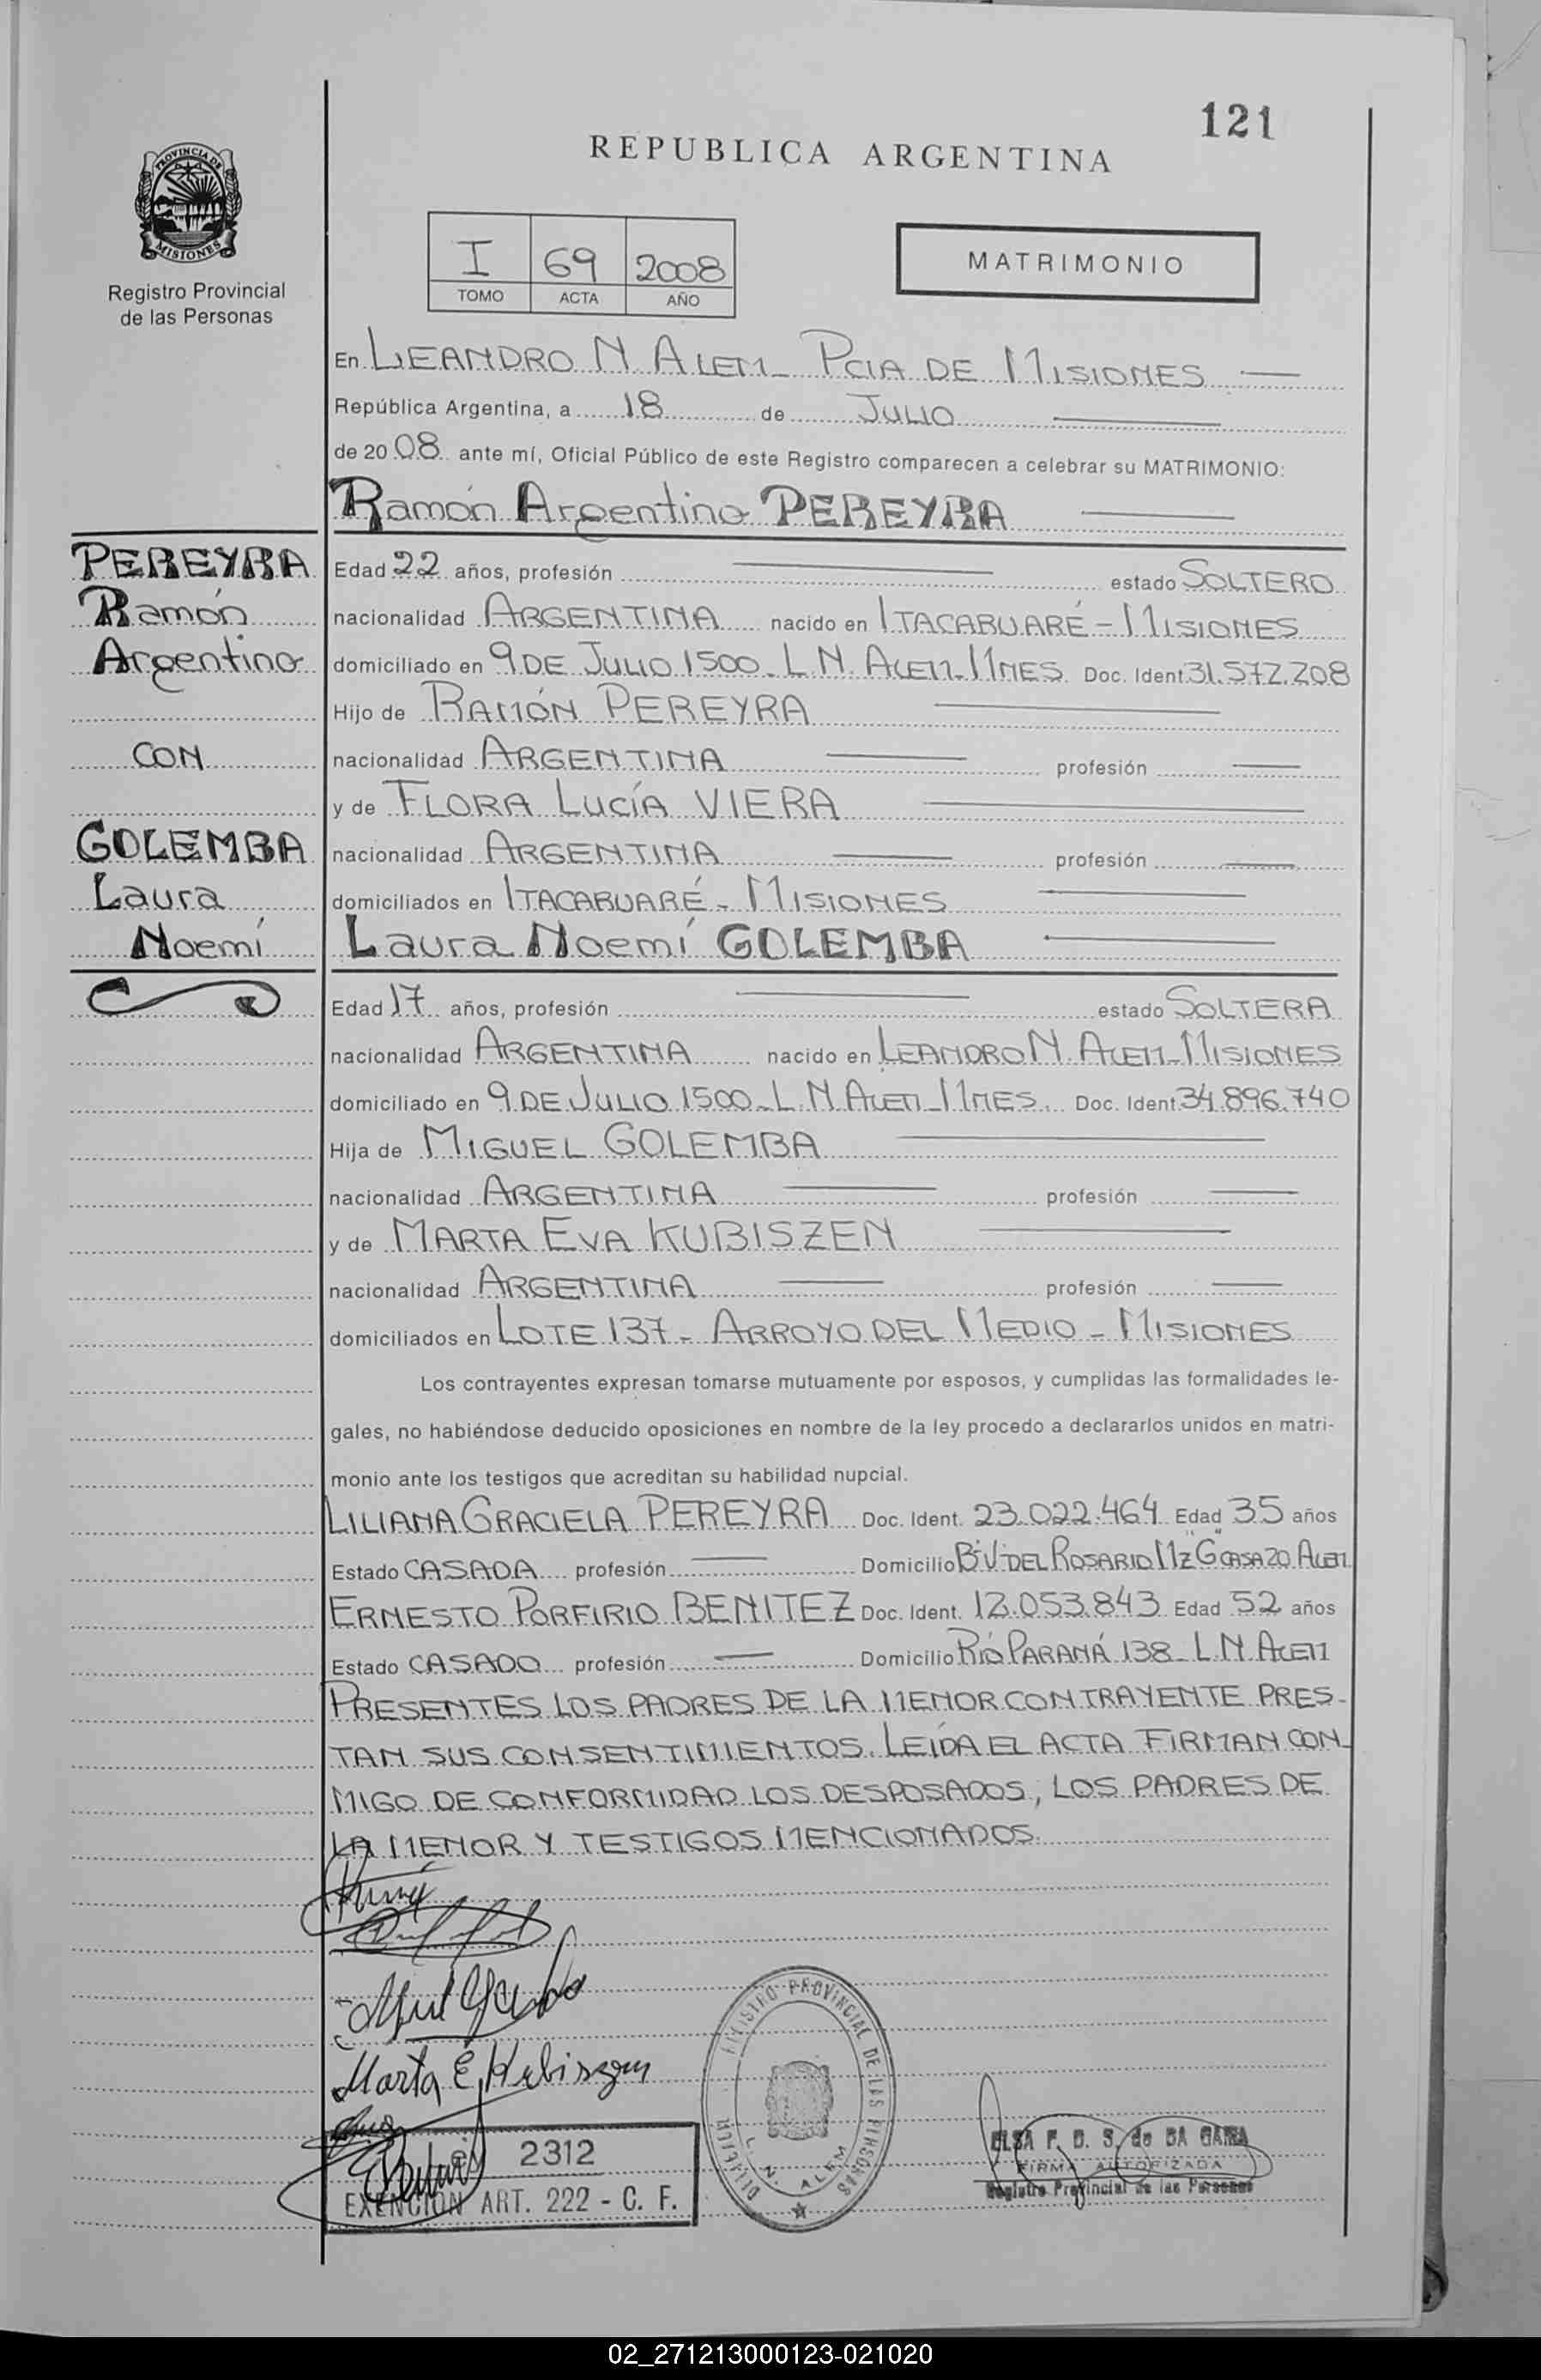 121
REPUBLICA ARGENTINA
PROVINCIA DE
MISIONES
Registro Provincial
de las Personas
I 69 2008
TOMO ACTA AÑO
MATRIMONIO
En LEANDRO N. ALEM - PCIA DE MISIONES
República Argentina, a 18 de JULIO
de 20 08 ante mí, Oficial Público de este Registro comparecen a celebrar su MATRIMONIO:
Ramón Argentino PEREYRA
PEREYRA
Ramón
Argentino
CON
GOLEMBA
Laura
Noemí
Edad 22 años, profesión estado SOLTERO
nacionalidad ARGENTINA nacido en ITACARUARÉ - MISIONES
domiciliado en 9 DE JULIO 1500 - L.N. ALEM - MNES. Doc. Ident. 31.572.208
Hijo de RAMÓN PEREYRA
nacionalidad ARGENTINA profesión
y de FLORA LUCÍA VIERA
nacionalidad ARGENTINA profesión
domiciliados en ITACARUARÉ - MISIONES
Laura Noemí GOLEMBA
Edad 17 años, profesión estado SOLTERA
nacionalidad ARGENTINA nacido en LEANDRO N. ALEM - MISIONES
domiciliado en 9 DE JULIO 1500 - L.N. ALEM - MNES. Doc. Ident. 34.896.740
Hija de MIGUEL GOLEMBA
nacionalidad ARGENTINA profesión
y de MARTA EVA KUBISZEN
nacionalidad ARGENTINA profesión
domiciliados en LOTE 137 - ARROYO DEL MEDIO - MISIONES
Los contrayentes expresan tomarse mutuamente por esposos, y cumplidas las formalidades le-
gales, no habiéndose deducido oposiciones en nombre de la ley procedo a declararlos unidos en matri-
monio ante los testigos que acreditan su habilidad nupcial.
LILIANA GRACIELA PEREYRA Doc. Ident. 23.022.464 Edad 35 años
Estado CASADA profesión Domicilio B°V. DEL ROSARIO MZ "G" CASA 20 ALEM
ERNESTO PORFIRIO BENITEZ Doc. Ident. 12.053.843 Edad 52 años
Estado CASADO profesión Domicilio RÍO PARANÁ 138 - L.N. ALEM
PRESENTES LOS PADRES DE LA MENOR CONTRAYENTE PRES-
TAN SUS CONSENTIMIENTOS. LEÍDA EL ACTA FIRMAN CON-
MIGO DE CONFORMIDAD LOS DESPOSADOS, LOS PADRES DE
LA MENOR Y TESTIGOS MENCIONADOS.
Marta E. Kubiszen
2312
EXENCION ART. 222 - C. F.
REGISTRO PROVINCIAL DE LAS PERSONAS
L. N. ALEM
ELSA F. D. S. de DA GAMA
FIRMA AUTORIZADA
Registro Provincial de las Personas
02_271213000123-021020